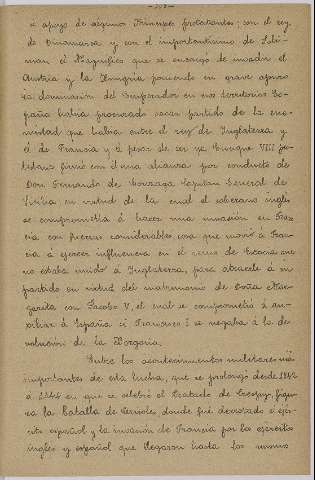 el apoyo de algunos Principes protestantes; con el rey
de Dinamarca y con el importantisimo de Soli-
man el Magnifico que se encargo de invadir el
Austria y la Hungria poniendo en grave apuro
la dominación del Emperador en sus territorios Es-
paña habia procurado sacar partido de la ene-
mistad que habia entre el rey de Inglaterra y
el de Francia y á pesar de ser ya Enrique VIII
firmó con él una alianza por conducto de
Don Fernando de Gonzaga Capitan General de
Sicilia en virtud de la cual el soberano ingles
se comprometía á hacer una invasión en Fran
cia con fuerzas considerables cosa que movió á Fran
cia á ejercer influencia en el reino de Escocia que
no estaba unido á Inglaterra, para atraerle á su
partido en virtud del matrimonio de Doña Mar-
garita con Jacobo V, el cual se comprometía á au-
xiliar á España si Francisco I se negaba á la de
volución de la Borgoña.
Entre los acontecimientos militares más
importantes de esta lucha, que se prolongó desde 1542
á 1544 en que se celebró el Tratado de Crespy, figu-
ra la Batalla de Cerisole donde fué derrotado el ejer-
cito español y la invasión de Francia por los ejercitos
ingles y español que llegaron hasta los mismos